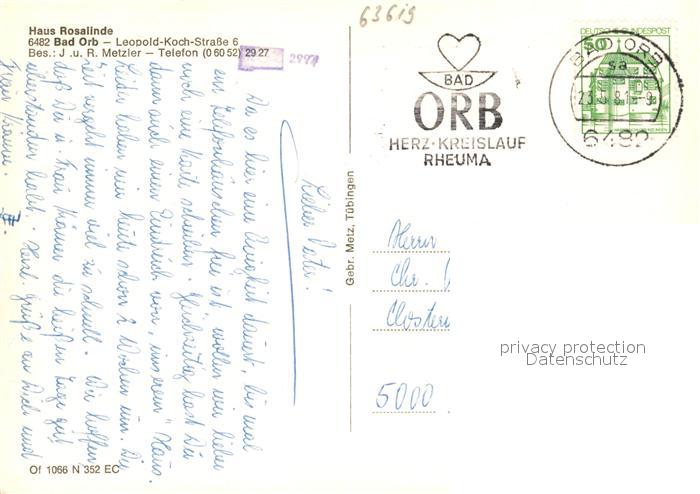 63619
Haus Rosalinde
6482 Bad Orb – Leopold-Koch-Straße 6
Bes.: J. u. R. Metzler – Telefon (0 60 52) 29 27
2997
Lieber Vater!
Da es hier eine Ewigkeit dauert, bis mal
ein Telefonhäuschen frei ist, wollen wir lieber
noch eine Karte schreiben. Gleichzeitig hast Du
dann auch einen Eindruck von unserem "Haus.
Leider haben wir heute schon 2 Wochen um. Die
Zeit vergeht immer viel zu schnell. Wir hoffen
daß Du u. Frau Krämer die heißen Tage gut
überstanden habt. Herzl. Grüße an Dich und
Frau Krämer.
Of 1066 N 352 EC
Gebr. Metz, Tübingen
BAD
ORB
HERZ·KREISLAUF
RHEUMA
DEUTSCHE BUNDESPOST
50
BAD ORB
sa
6482
Herrn
Chr.
Closter
5000
privacy protection
Datenschutz